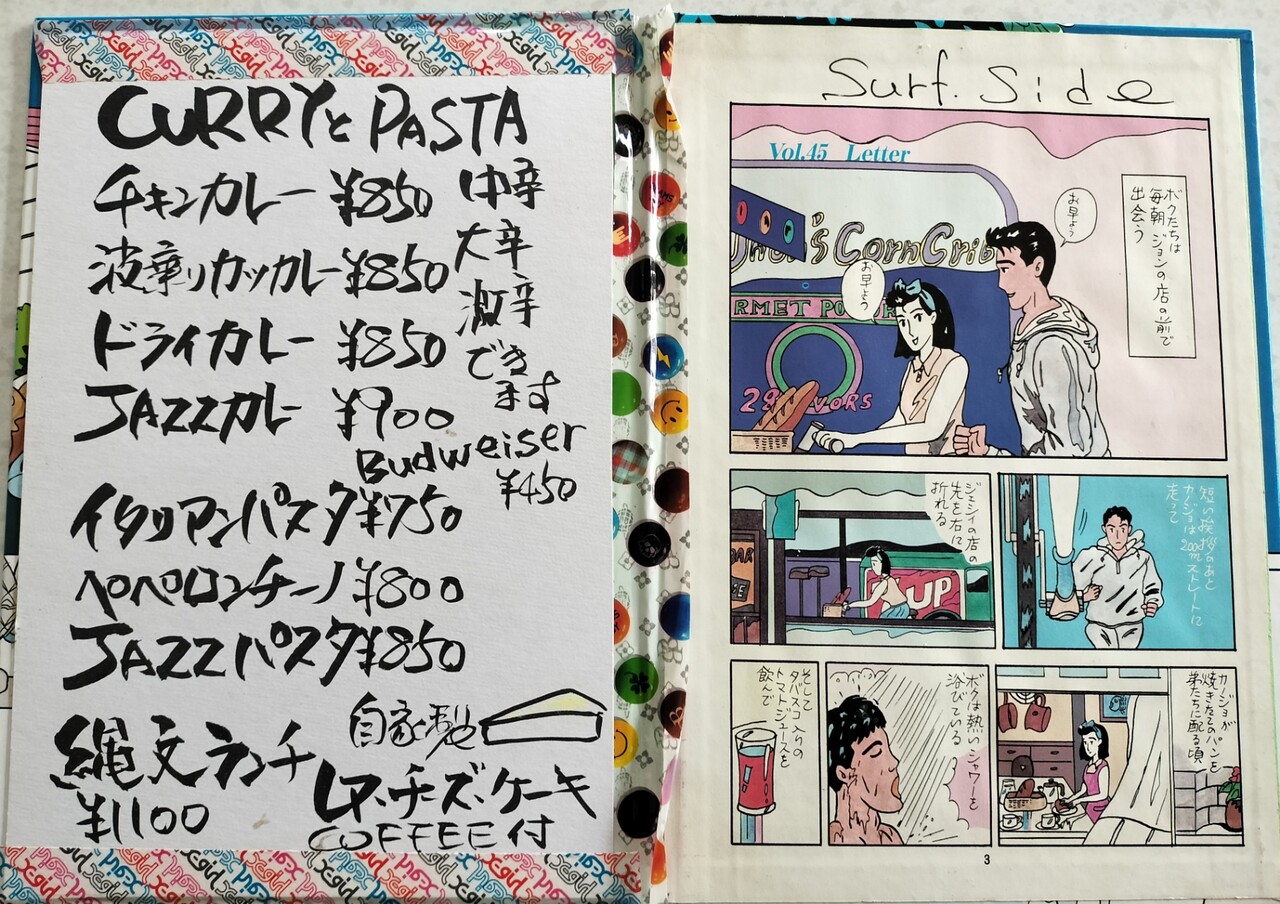 CURRYと PASTA
チキンカレー ¥850
波乗りカツカレー ¥850
ドライカレー ¥850
JAZZカレー ¥900
中辛
大辛
激辛
でき
ます
Budweiser
¥450
イタリアンパスタ ¥750
ペペロンチーノ ¥800
JAZZパスタ ¥850
縄文ランチ
¥1100
自家製
レアーチーズ、ケーキ
COFFEE付
X-girl
Surf. Side
Vol.45 Letter
ボクたちは
毎朝ジョンの店の前で
出会う
お早よう
お早よう
's CornCrib
RMET PO
28 VORS
短い挨拶のあと
カージョは200mストレートに
走って
ジェシィの店の
先を右に
折れる
BAR
UP
カージョが
焼きたてのパンを
弟たちに配る頃
ボクは熱いシャワーを
浴びている
そして
タバスコ入りの
トマトジュースを
飲んで
3